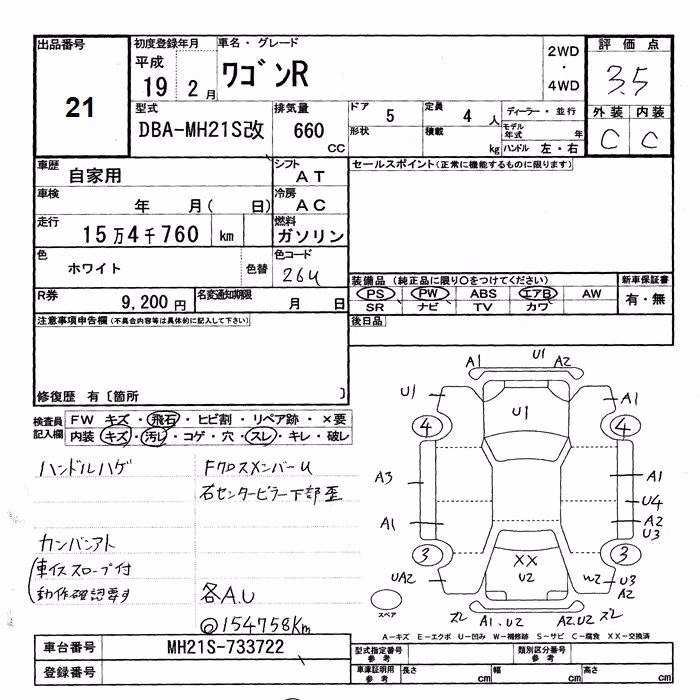 出品番号
21
初度登録年月
平成
19 2月
車名・グレード
ワゴンR
2WD
・
4WD
評価点
3.5
型式
DBA-MH21S改
排気量
660
cc
ドア 5
形状
定員 4 人
積載 kg
ディーラー・並行
モデル年式 年
ハンドル 左・右
外装 内装
C C
車歴
自家用
シフト
AT
セールスポイント(正常に機能するものに限ります)
車検
年 月( 日)
冷房
AC
走行
15万4千760 km
燃料
ガソリン
色
ホワイト
色替
色コード
26U
R券
9,200円
名変通知期限
月 日
装備品 (純正品に限り〇をつけてください)
PS PW ABS エアB AW
SR ナビ TV カワ
新車保証書
有・無
注意事項申告欄(不具合内容等は具体的に記入して下さい)
後日品
修復歴 有〔箇所 〕
検査員
記入欄
FW キズ・飛石・ヒビ割・リペア跡・×要
内装 キズ・汚レ・コゲ・穴・スレ・キレ・破レ
ハンドルハゲ
Fクロスメンバーu
右センターピラー下部歪
カンバンアト
車イススロープ付
動作確認要す
各A.U
◎154758Km
A1 U1 A2
U1 U1 A1
4 4
A3 A1
U4
A1 A2
U3
3 3
XX
U2
UA2 W2 U3
A2
スペア
ズレ A1.U2 A2.U2 ズレ
A-キズ E-エクボ U-凹み W-補修跡 S-サビ C-腐食 XX-交換済
車台番号
MH21S-733722
登録番号
型式指定番号
参考
類別区分番号
参考
車庫証明用
参考
長さ cm
幅 cm
高さ cm